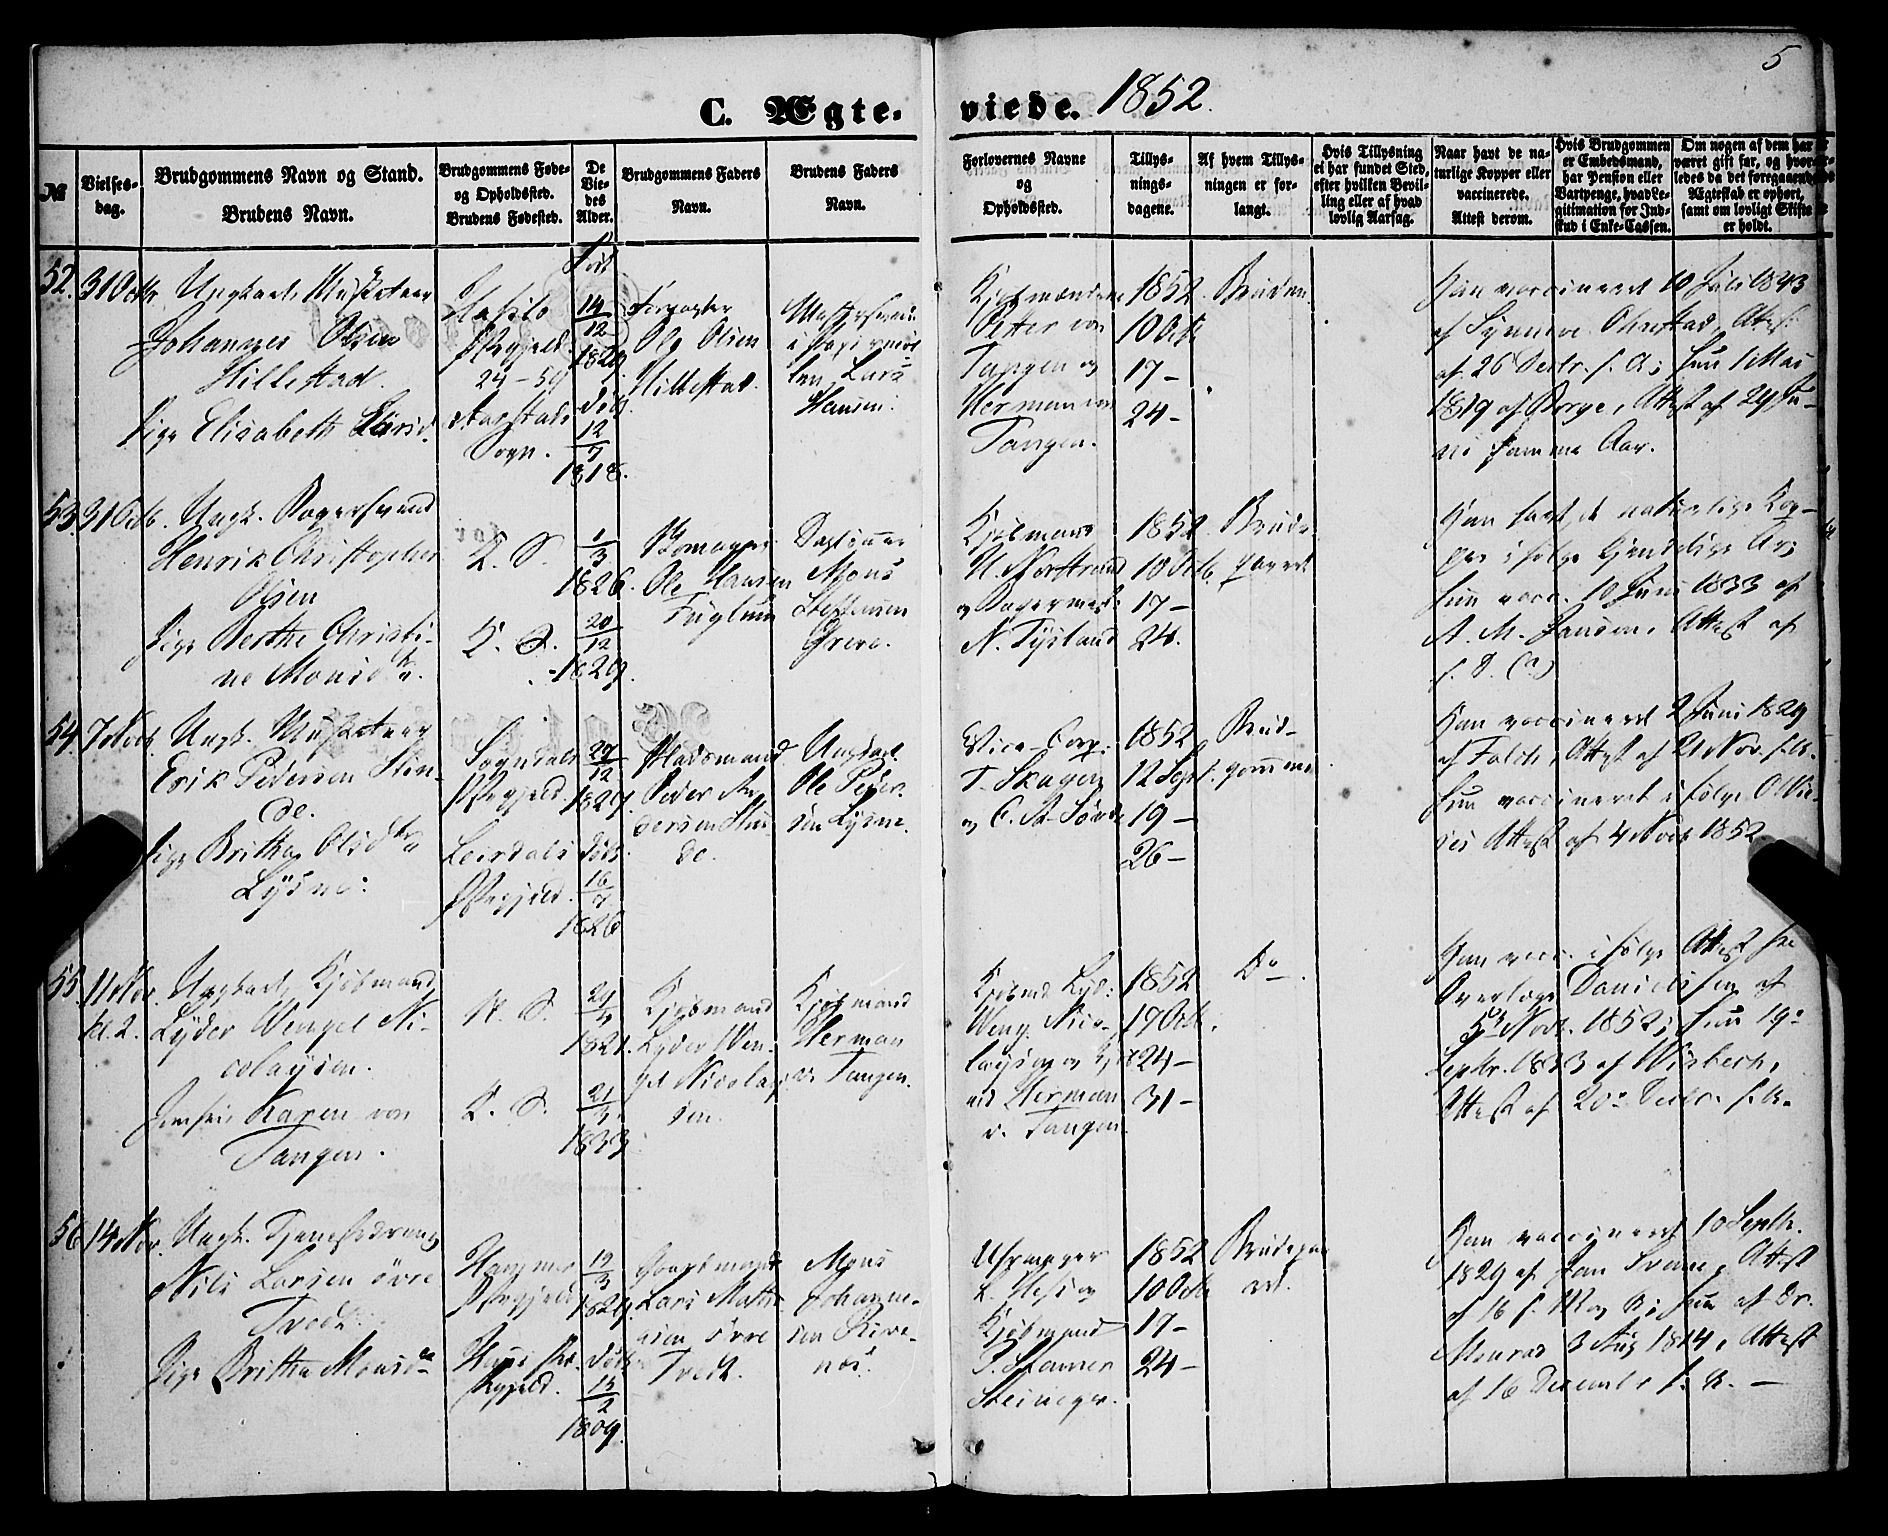 5
C. Ægte- viede. 1852.
№
Vielses-
dag.
Brudgommens Navn og Stand.
Brudens Navn.
Brudgommens Føde-
og Opholdssted.
Brudens Fødested.
De
Vie-
des
Alder.
Brudgommens Faders
Navn.
Brudens Faders
Navn.
Forlovernes Navne
og
Opholdssted.
Tillys-
nings-
dagene.
Af hvem Tillys-
ningen er for-
langt.
Hvis Tillysning
ei har fundet Sted,
efter hvilken Bevil-
ling eller af hvad
lovlig Aarsag.
Naar havt de na-
turlige Kopper eller
vaccinerede.
Attest derom.
Hvis Brudgommen
er Embedsmand,
har Pension eller
Vartpenge, hvad Le-
gitimation for Ind-
skud i Enke-Cassen.
Om nogen af dem har
været gift før, og hvor-
ledes da det foregaaende
Ægteskab er ophørt,
samt om lovligt Skifte
er holdt.
52.
31 Octbr
Ungkarl, Musketeer
Johannes Olsen
Hillestad.
Pige Elisabeth Larsd.
Hafslo
Præstegjeld
24-59
Sogn.
Født
14
12
1829
døb.
12
7
1818.
Ole Olsen
Hillestad.
Lars
Hansen.
Kjøbmændene
Peter von
Tangen og
Herman von
Tangen.
1852
10 Octb
17 –
24 –
Bruden
Han vaccineret 10 Juli 1843
af Synneve Ohnstad, Attest
af 26 Decbr. s. A; hun 1 Mai
1819 af Borge, Attest af 29 Ju-
ni samme Aar.
53.
31 Octb.
Ungk. Bagersvend
Henrik Christopher
Olsen
Pige Berthe Christi-
ne Monsdtr.
K. S.
K. S.
1
3
1826.
20
12
1829.
Ole Hansen
Fuglum
Mons
Steffensen
Greve.
Kjøbmand
N. Nortrand
og Bagermester
N. Tysland
1852
10 Octb.
17 –
24.
Han havt de naturlige Kop-
per ifølge
hun vacc. 10 Juni 1833 af
A. M. Jansen, Attest af
s. D.
54.
7 Novb.
Ungk. Musketeer
Erik Pedersen Slin-
de.
Pige Britha Olsdtr
Lysne.
Sogndals
Præstegjeld.
Leirdals
Præstegjeld.
29
12
1827.
døb.
16
7
1826
Pladsmand
Peder An-
dersen Slin-
de.
Ungkarl
Ole Peder-
sen Lysne.
Vice-Corp.
T. Skagen
1852
12 Sept.
19 –
26 –
Brud-
gommen
Han vaccineret 2 Juni 1829
af Falch, Attest af 21 Nov. s. A.
hun vaccineret ifølge O. Vie-
ses Attest af 4 Novb 1852.
55.
11 Nov.
kl. 2.
Ungkarl, Kjøbmand
Lyder Wengel Ni-
colaysen.
Jomfru Karen von
Tangen.
K. S.
K. S.
1821.
21
3
1833.
Kjøbmand
Lyder Wen-
gel Nicolay-
sen.
Kjøbmand
Herman
von Tangen.
Kjøbmd Lyd:
Weng. Nico-
laysen og Kjøb-
md Herman
v. Tangen.
1852
17 Octb.
24 –
31 –
Do
Han vacc. ifølge Attest fra
Overlæge Danielssen af
5te Novb. 1852; hun 19de
Septbr. 1833 af Wisbech,
Attest af 20de Decbr. s. A.
56.
14 Nov.
Ungk. Tjenestedreng
Nils Larsen øvre
Tvedt.
Pige Britha Monsdtr
Hammer
Præstegjeld
Huus Præ-
stegjeld.
19
3
1829.
døb.
15
2
1809.
Gaardmand
Lars Mathi-
asen øvre
Tvedt.
Mons
Johannes-
sen Rive-
næs.
Uhrmager
L. Hess og
Kjøbmand
Steineger.
1852
10 Octb
17 –
24 –
Brudepar-
ret.
Han vaccineret 10 Septbr.
1829 af Jan Svane, Attest
af 16 s. M og A; hun af Dr.
Monrad 3 Aug 1814, Attest
af 16 December s. A. –